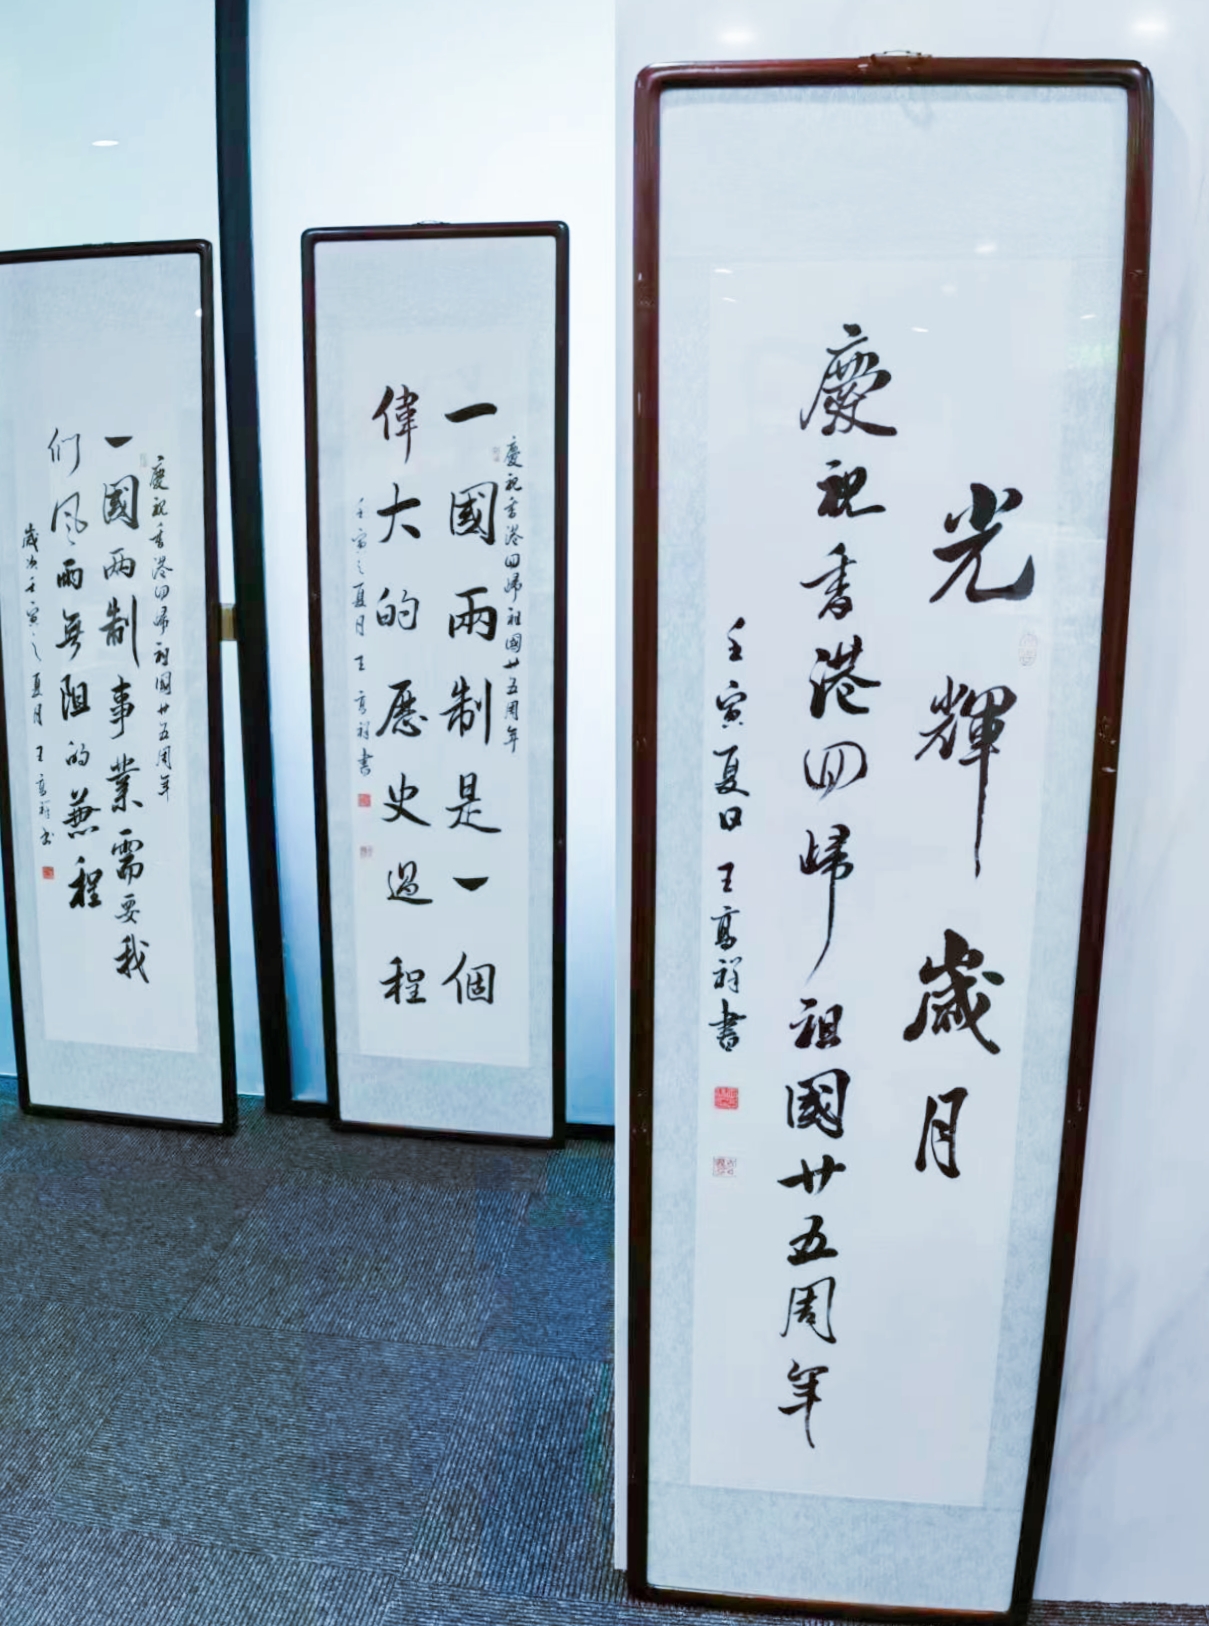 光輝歲月
慶祝香港回歸祖國廿五周年
壬寅夏日 王高祥書
慶祝香港回歸祖國廿五周年
一國兩制是一個
偉大的歷史過程
壬寅之夏月 王高祥書
慶祝香港回歸祖國廿五周年
一國两制事業需要我
们風雨無阻的兼程
歲次壬寅之夏月 王高祥书